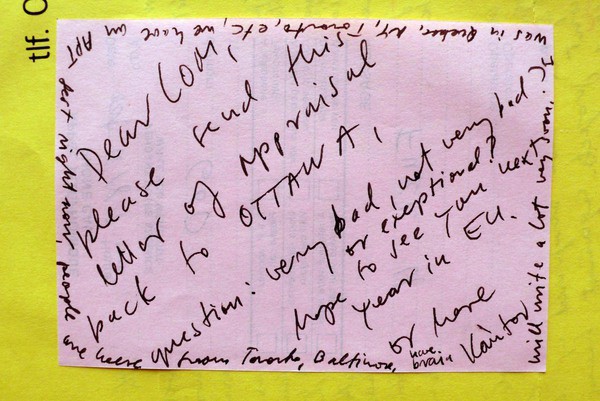 tlf. O
Dear Com,
please send this
letter of appraisal
back to OTTAWA,
question: very bad, not very bad
or exeptional?
Hope to see you next
year in EU.
or here
Kantor
was in Quebec, NY, Toronto, etc, we have an APT
right now, people
are here from Toronto, Baltimore,
have
brain
will write a lot very soon.